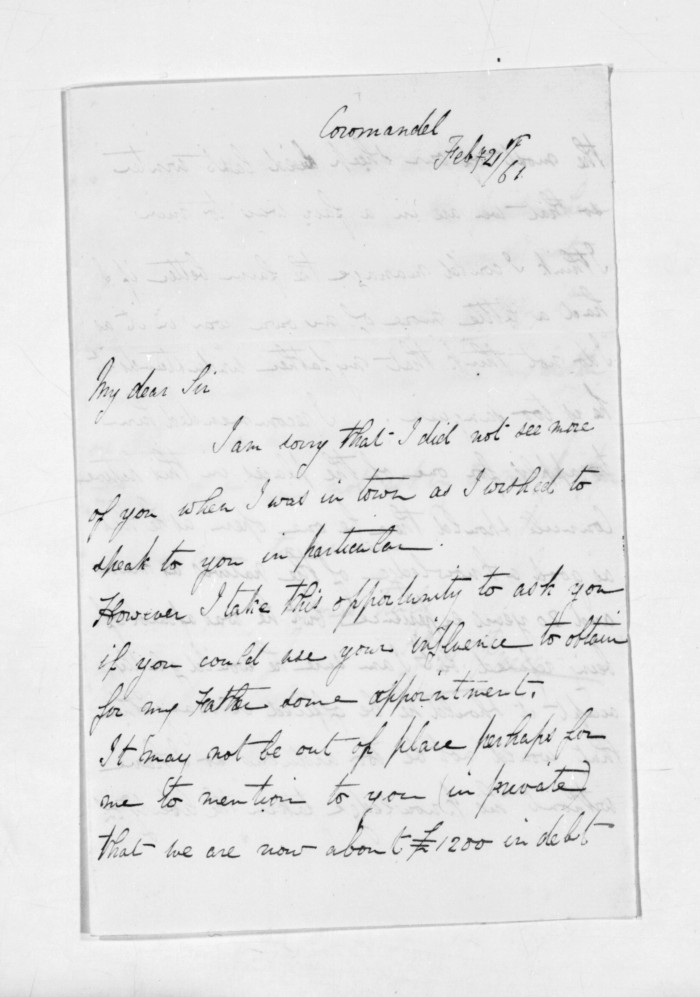 Coromandel
Feby 21st/61
My dear Sir
I am sorry that I did not see more
of you when I was in town as I wished to
speak to you in particular.
However I take this opportunity to ask you
if you could use your influence to obtain
for my Father some appointment.
It may not be out of place perhaps for
me to mention to you (in private)
that we are now about £1200 in debt